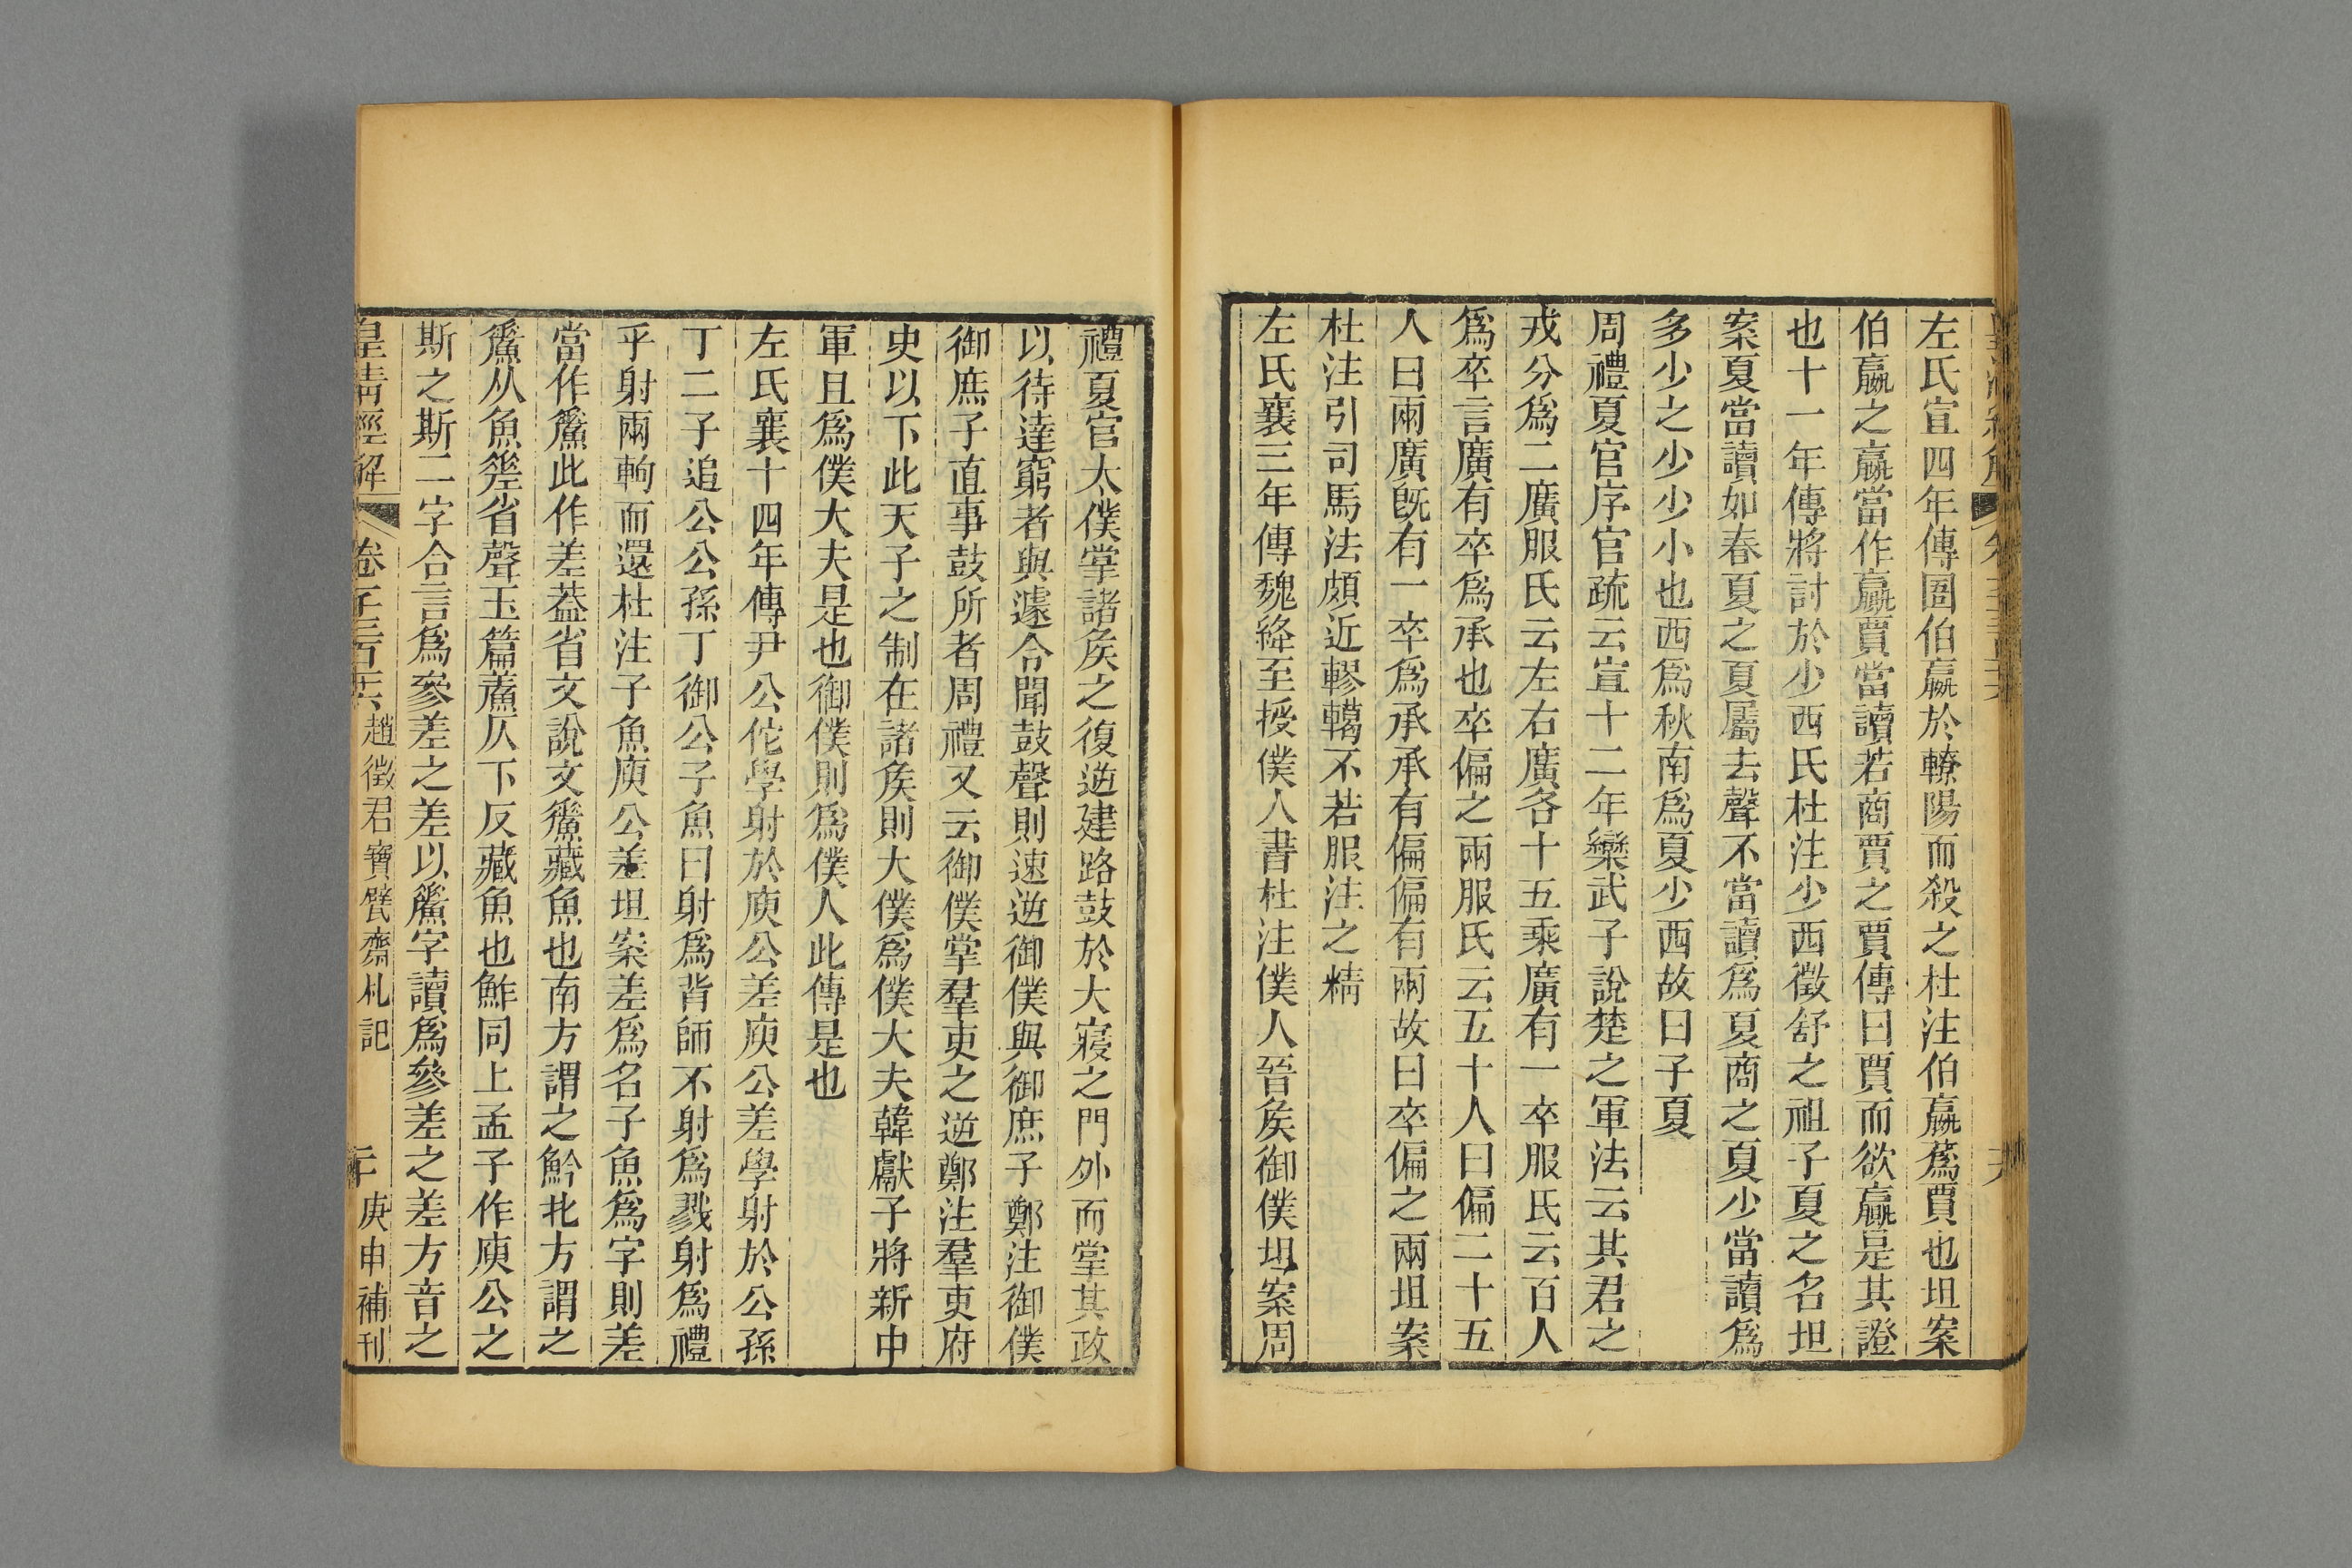 左氏宣四年傳圄伯嬴於轑陽而殺之杜注伯嬴蒍賈也坦案
伯嬴之嬴當作贏賈當讀若商賈之賈傳曰賈而欲贏是其證
也十一年傳將討於少西氏杜注少西徵舒之祖子夏之名坦
案夏當讀如春夏之夏屬去聲不當讀爲夏商之夏少當讀爲
多少之少少小也西爲秋南爲夏少西故曰子夏
周禮夏官序官疏云宣十二年欒武子說楚之軍法云其君之
戎分爲二廣服氏云左右廣各十五乘廣有一卒服氏云百人
爲卒言廣有卒爲承也卒偏之兩服氏云五十人曰偏二十五
人曰兩廣旣有一卒爲承承有偏偏有兩故曰卒偏之兩坦案
杜注引司馬法頗近轇轕不若服注之精
左氏襄三年傳魏絳至授僕人書杜注僕人晉矦御僕坦案周
禮夏官大僕掌諸矦之復逆建路鼓於大寢之門外而掌其政
以待達窮者與遽令聞鼓聲則速逆御僕與御庶子鄭注御僕
御庶子直事鼓所者周禮又云御僕掌羣吏之逆鄭注羣吏府
史以下此天子之制在諸矦則大僕爲僕大夫韓獻子將新中
軍且爲僕大夫是也御僕則爲僕人此傳是也
左氏襄十四年傳尹公佗學射於庾公差庾公差學射於公孫
丁二子追公公孫丁御公子魚曰射爲背師不射爲戮射爲禮
乎射兩軥而還杜注子魚庾公差坦案差爲名子魚爲字則差
當作鮺此作差葢省文說文鮺藏魚也南方謂之䰼北方謂之
鮺从魚差省聲玉篇鮺仄下反藏魚也鮓同上孟子作庾公之
斯之斯二字合言爲參差之差以鮺字讀爲參差之差方音之
皇清經解 卷千三百十六 趙徵君寶甓齋札記 二十 庚申補刊